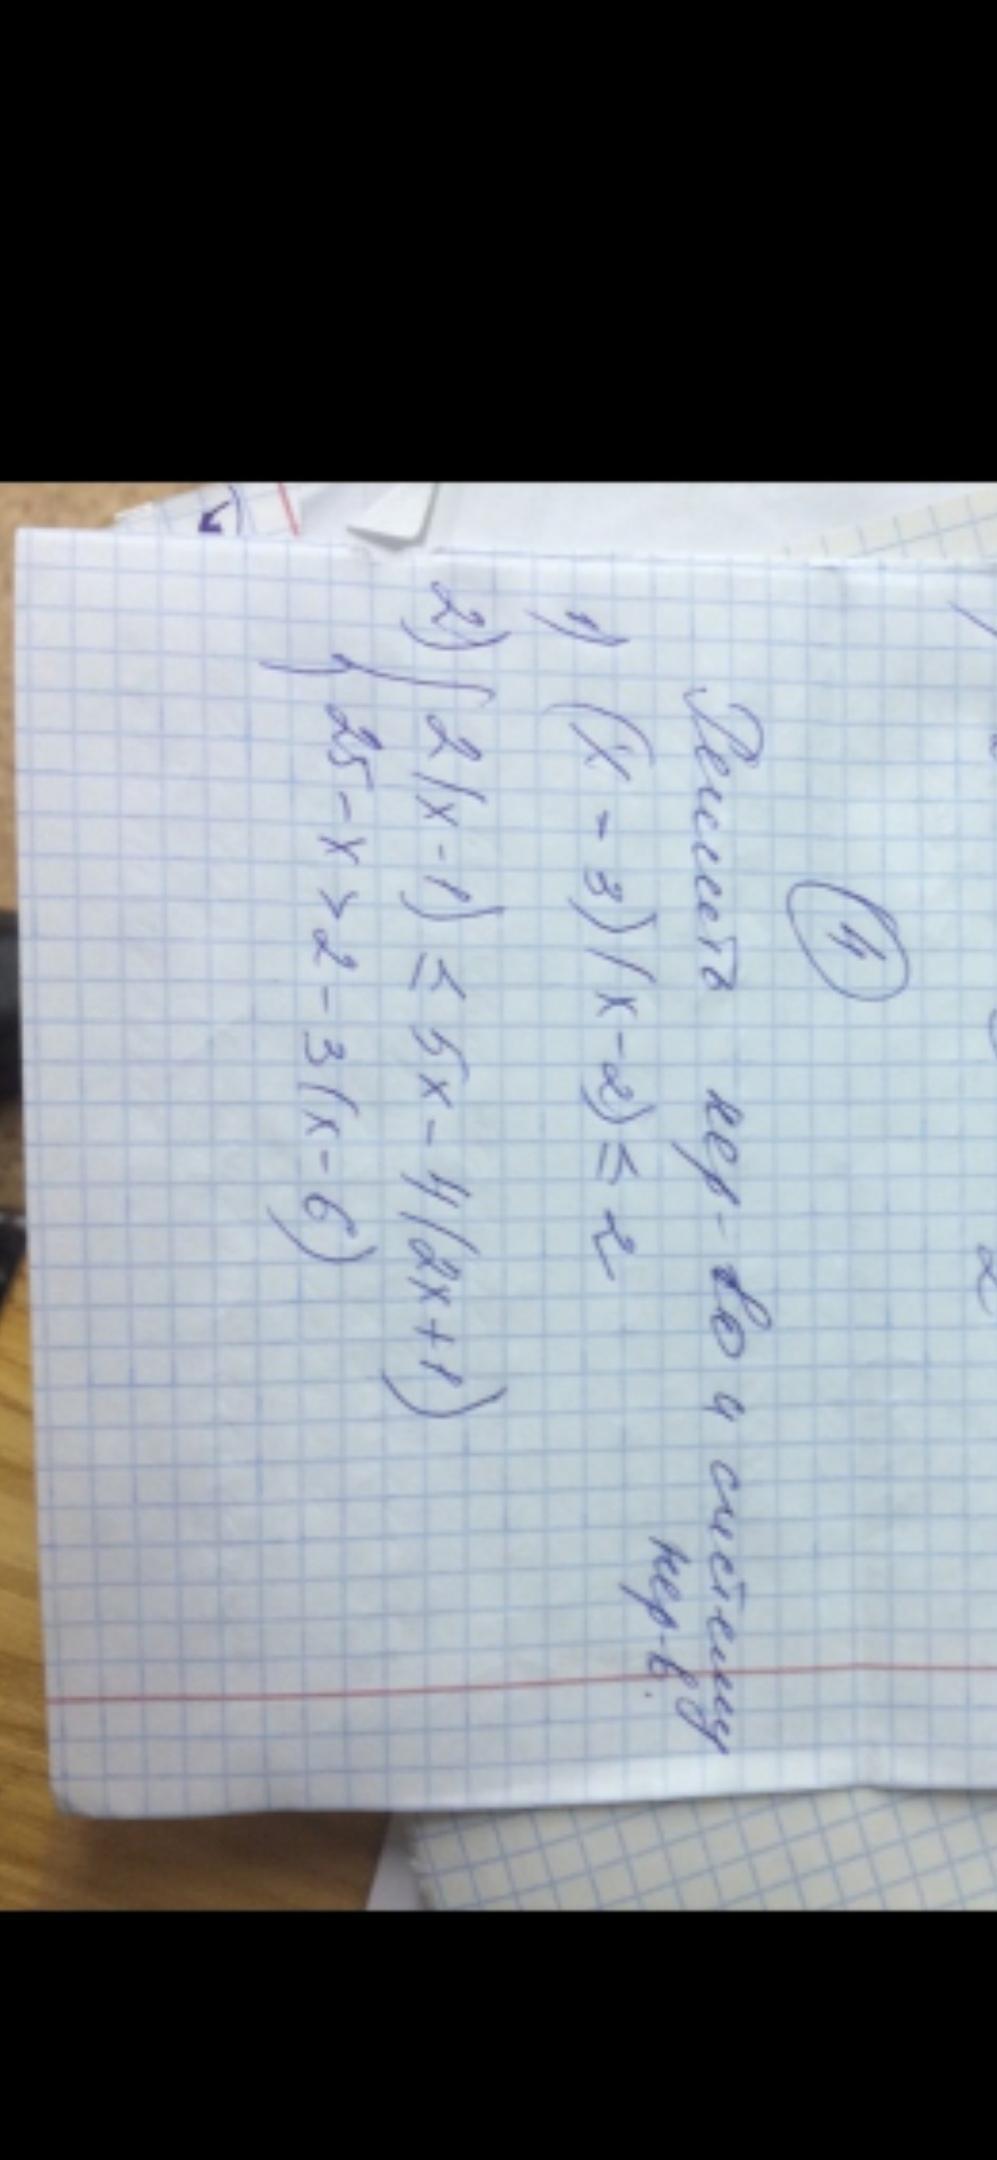 ④
Решить нер-во и систему
нер-в.
1) (x - 3)(x - 2) ≤ 2
2) { 2(x - 1) ≤ 5x - 4(2x + 1)
25 - x > 2 - 3(x - 6)